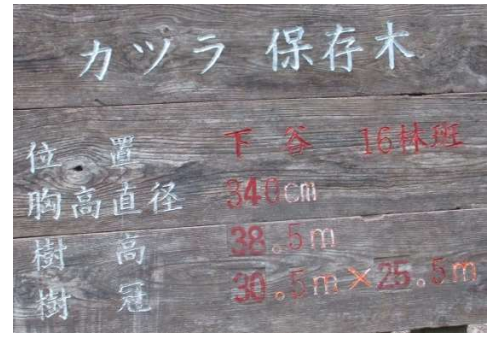 カツラ 保存木
位置 下谷 16林班
胸高直径 340cm
樹高 38.5m
樹冠 30.5m×25.5m